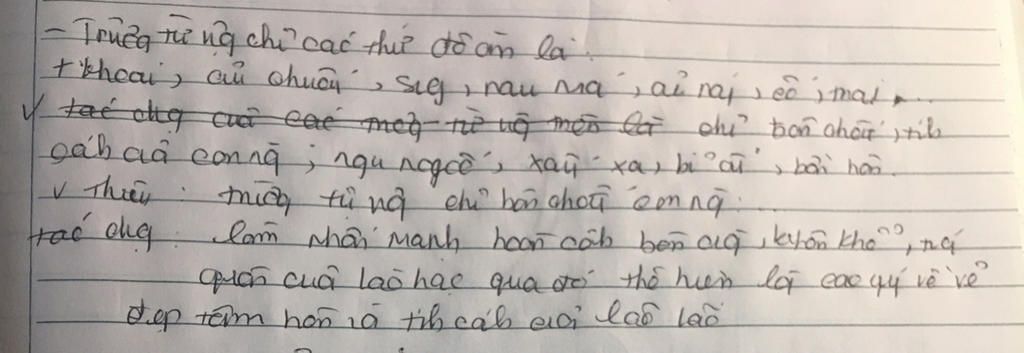 - Trường từ vựng chỉ các thứ đồ ăn là:
+ khoai, củ chuối, sung, rau má, củ ráy, ốc, trai
tác dụng của các trường từ vựng trên là chỉ bản chất, tính
cách của con ng, ngu ngốc, xấu xa, bỉ ổi, bần hàn.
v Trường từ vựng chỉ bản chất con ng:
tác dụng: làm nhấn mạnh hoàn cảnh bần cùng, khốn khổ,
quẫn của lão hạc qua đó thể hiện cao quý về vẻ
đẹp tâm hồn và tính cách của lão